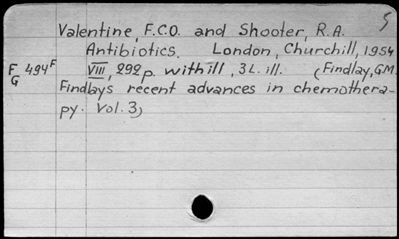 5
Valentine, F.C.O. and Shooter, R.A.
Antibiotics. London, Churchill, 1954
F 494F VIII, 292 p. with ill, 3 L. ill. (Findlay, G.M.
G Findlays recent advances in chemothera-
py. Vol. 3)